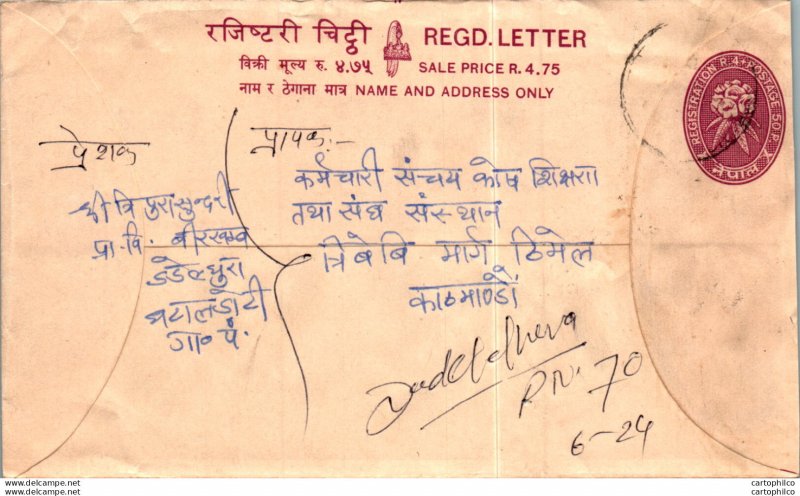 रजिष्टरी चिट्ठी REGD. LETTER
विक्री मूल्य रु. ४.७५ SALE PRICE R. 4.75
नाम र ठेगाना मात्र NAME AND ADDRESS ONLY
REGISTRATION R.4+POSTAGE 50P.
नेपाल
प्रेशक
श्री त्रिपुरासुन्दरी
प्रा.वि.
डडेल्धुरा
गा० पं.
प्रापक:-
कर्मचारी संचय कोष शिक्षा
तथा संघ संस्थान
त्रिबेबि मार्ग ठिमेल
काठमाण्डौं
Dadeldhura
R No 70
6-24
cartophilco
cartophilco